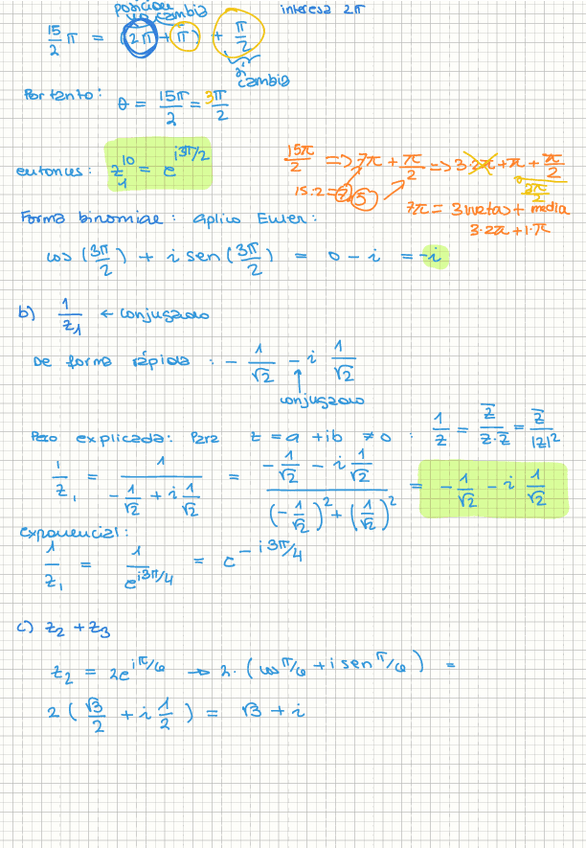 posición no cambia
interesa 2π
15/2 π = (2π + π) + π/2
sí cambia
Por tanto: θ = 15π/2 = 3π/2
entonces: z₁¹⁰ = e^(i3π/2)
15π/2 => 7π + π/2 => 3·2π + π + π/2
3π/2
15:2 = 7,5
7π = 3 vueltas + media
3·2π + 1·π
Forma binomial: aplico Euler:
cos(3π/2) + i sen(3π/2) = 0 - i = -i
b) 1/z₁ ← conjugado
De forma rápida: - 1/√2 - i 1/√2
conjugado
Pero explicada: Para z = a + ib ≠ 0 : 1/z = z̄/(z·z̄) = z̄/|z|²
1/z₁ = 1/(-1/√2 + i 1/√2) = (-1/√2 - i 1/√2)/((-1/√2)² + (1/√2)²) = -1/√2 - i 1/√2
exponencial:
1/z₁ = 1/e^(i3π/4) = e^(-i3π/4)
c) z₂ + z₃
z₂ = 2e^(iπ/6) → 2·(cos π/6 + i sen π/6) =
2(√3/2 + i 1/2) = √3 + i